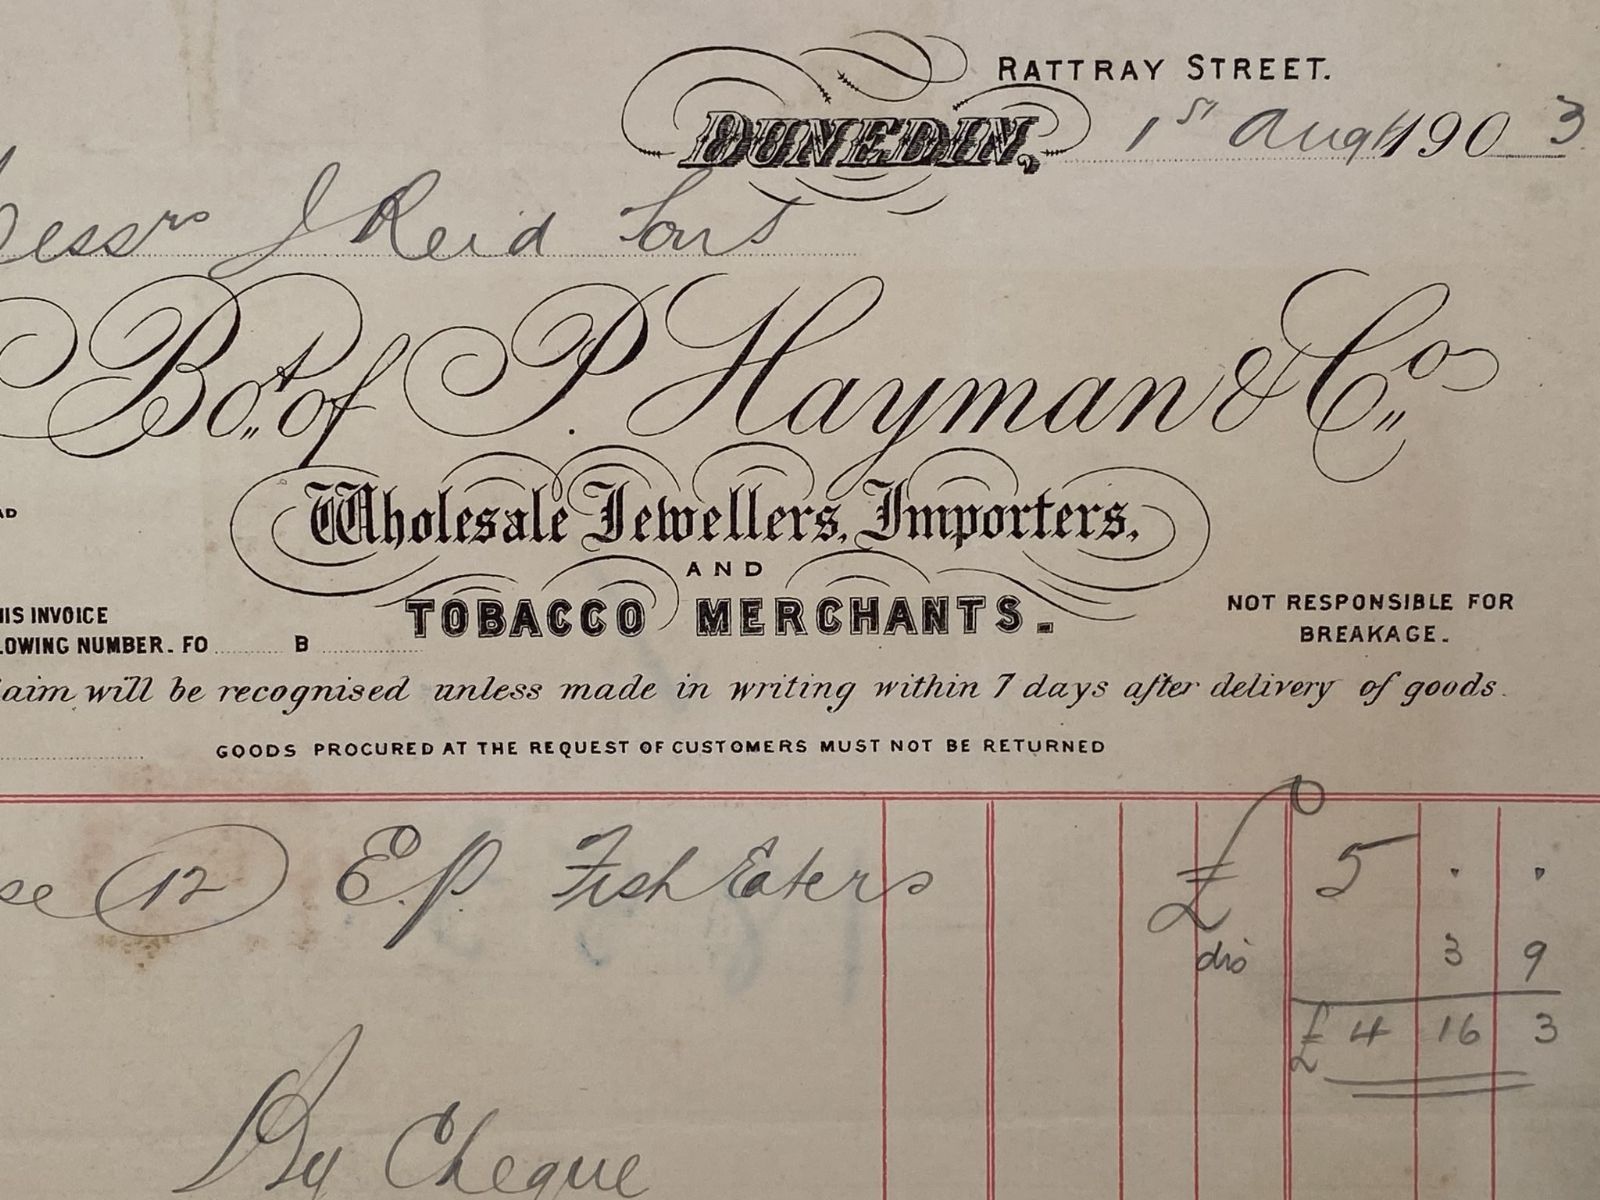 RATTRAY STREET.
DUNEDIN, 1st Augt 1903
Messrs J Reid Sons
Bot. of P. Hayman & Co
Wholesale Jewellers, Importers,
AND
TOBACCO MERCHANTS.
NOT RESPONSIBLE FOR
BREAKAGE.
HIS INVOICE
LOWING NUMBER. FO B
laim will be recognised unless made in writing within 7 days after delivery of goods.
GOODS PROCURED AT THE REQUEST OF CUSTOMERS MUST NOT BE RETURNED
se 12 E.P. Fish Eaters £ 5 . .
dis 3 9
£ 4 16 3
By Cheque